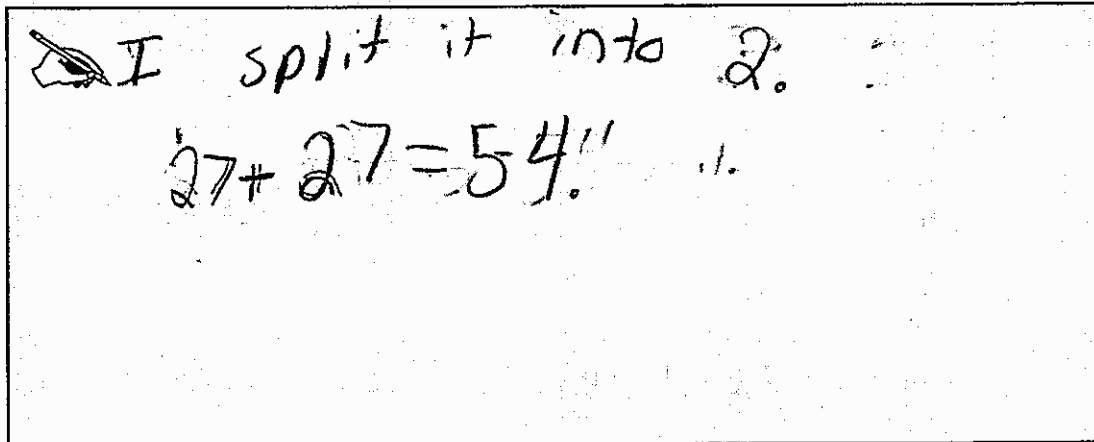 I split it into 2.
27+27=54.